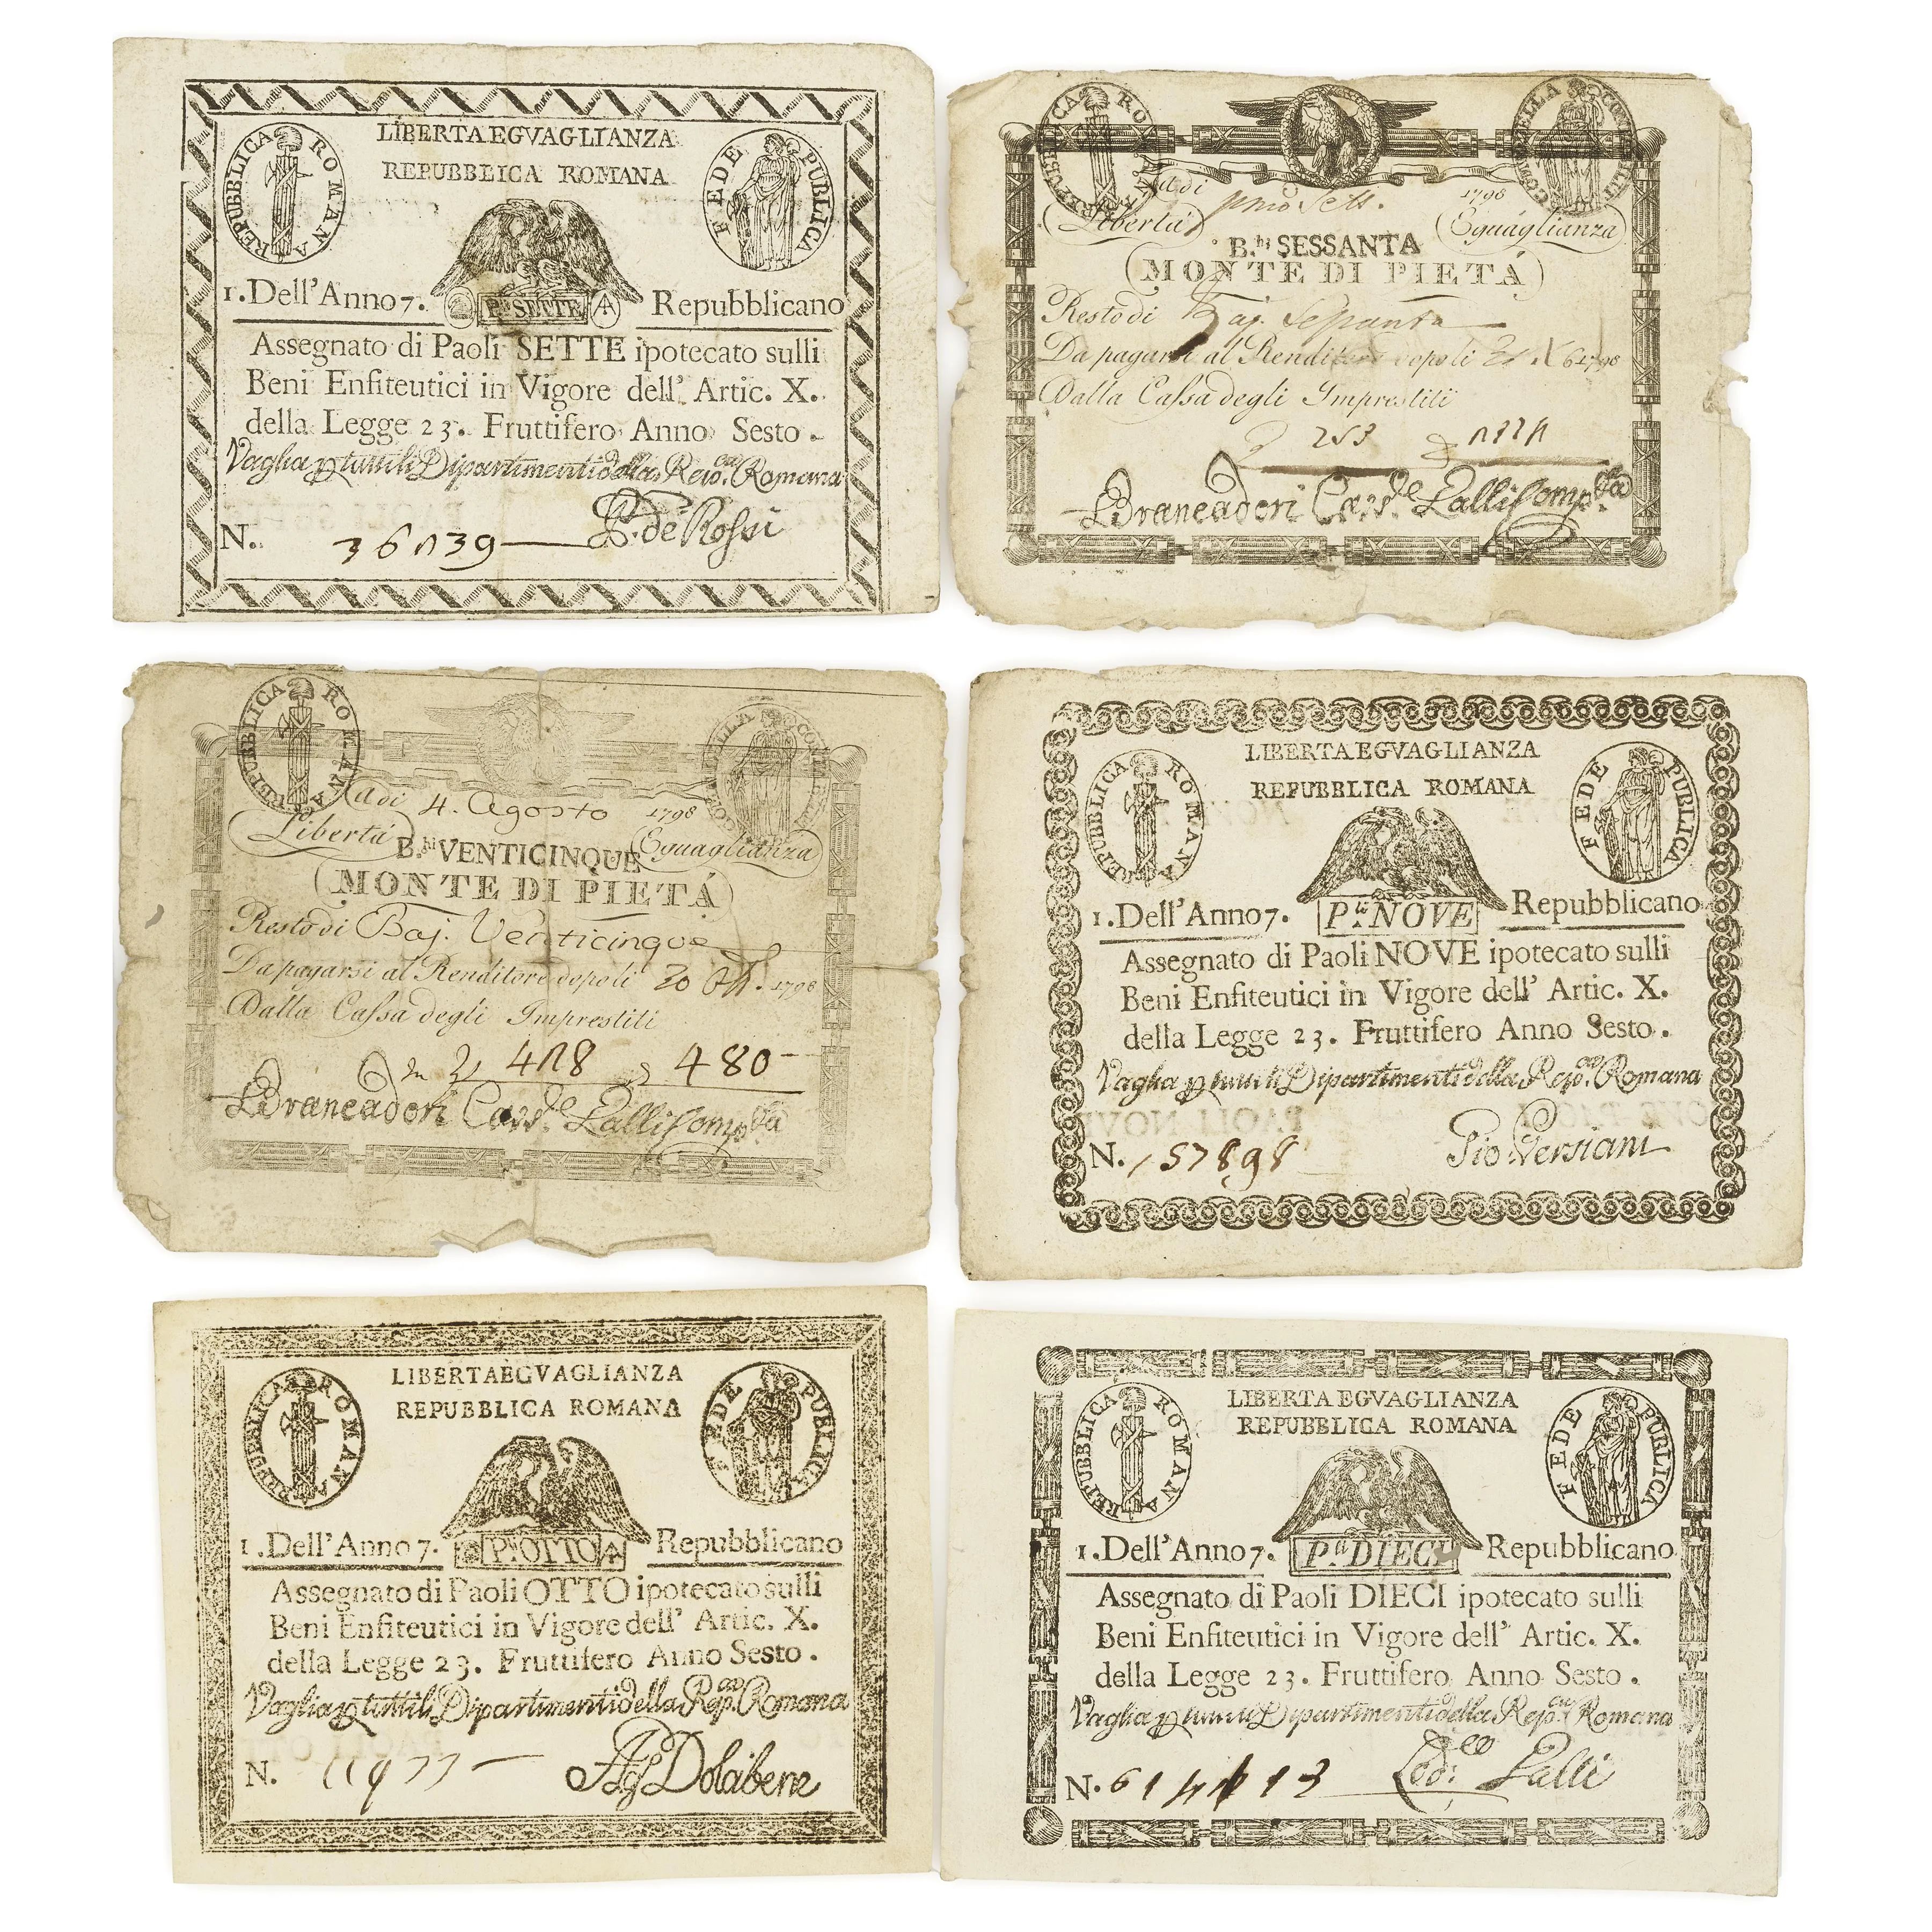 LIBERTA EGVAGLIANZA
REPUBBLICA ROMANA
REPUBBLICA ROMANA
FEDE PUBLICA
1. Dell'Anno 7. P.li SETTE Repubblicano
Assegnato di Paoli SETTE ipotecato sulli
Beni Enfiteutici in Vigore dell' Artic. X.
della Legge 23. Fruttifero Anno Sesto.
Vaglia p tutti li Dipartimenti della Rep.ca Romana
N. de Rossi
REPUBBLICA ROMANA
adi pmo Sett. 1798
Libertá Eguaglianza
B.hi SESSANTA
(MONTE DI PIETÁ)
Resto di Baj. Sessanta
Da pagarsi al Renditore dopoli 1798
Dalla Cassa degli Imprestiti
253
Brancadori Cass.e Lalli Comp.sta
REPUBBLICA ROMANA
adi 4. Agosto 1798
Libertá Eguaglianza
B.hi VENTICINQUE
(MONTE DI PIETÁ)
Resto di Baj. Venticinque
Da pagarsi al Renditore dopoli 20 1798
Dalla Cassa degli Imprestiti
480
Brancadori Cass.e Lalli Comp.sta
LIBERTA EGVAGLIANZA
REPUBBLICA ROMANA
REPUBBLICA ROMANA
FEDE PUBLICA
1. Dell'Anno 7. P.li NOVE Repubblicano
Assegnato di Paoli NOVE ipotecato sulli
Beni Enfiteutici in Vigore dell' Artic. X.
della Legge 23. Fruttifero Anno Sesto.
Vaglia p tutti li Dipartimenti della Rep.ca Romana
N. 157898 Pio Versiani
LIBERTA EGVAGLIANZA
REPUBBLICA ROMANA
REPUBBLICA ROMANA
FEDE PUBLICA
1. Dell'Anno 7. P.li OTTO Repubblicano
Assegnato di Paoli OTTO ipotecato sulli
Beni Enfiteutici in Vigore dell' Artic. X.
della Legge 23. Fruttifero Anno Sesto.
Vaglia p tutti li Dipartimenti della Rep.ca Romana
N. 11977 Ag. Dolabene
LIBERTA EGVAGLIANZA
REPUBBLICA ROMANA
REPUBBLICA ROMANA
FEDE PUBLICA
1. Dell'Anno 7. P.li DIECI Repubblicano
Assegnato di Paoli DIECI ipotecato sulli
Beni Enfiteutici in Vigore dell' Artic. X.
della Legge 23. Fruttifero Anno Sesto.
Vaglia p tutti li Dipartimenti della Rep.ca Romana
N. Lod.co Lalli